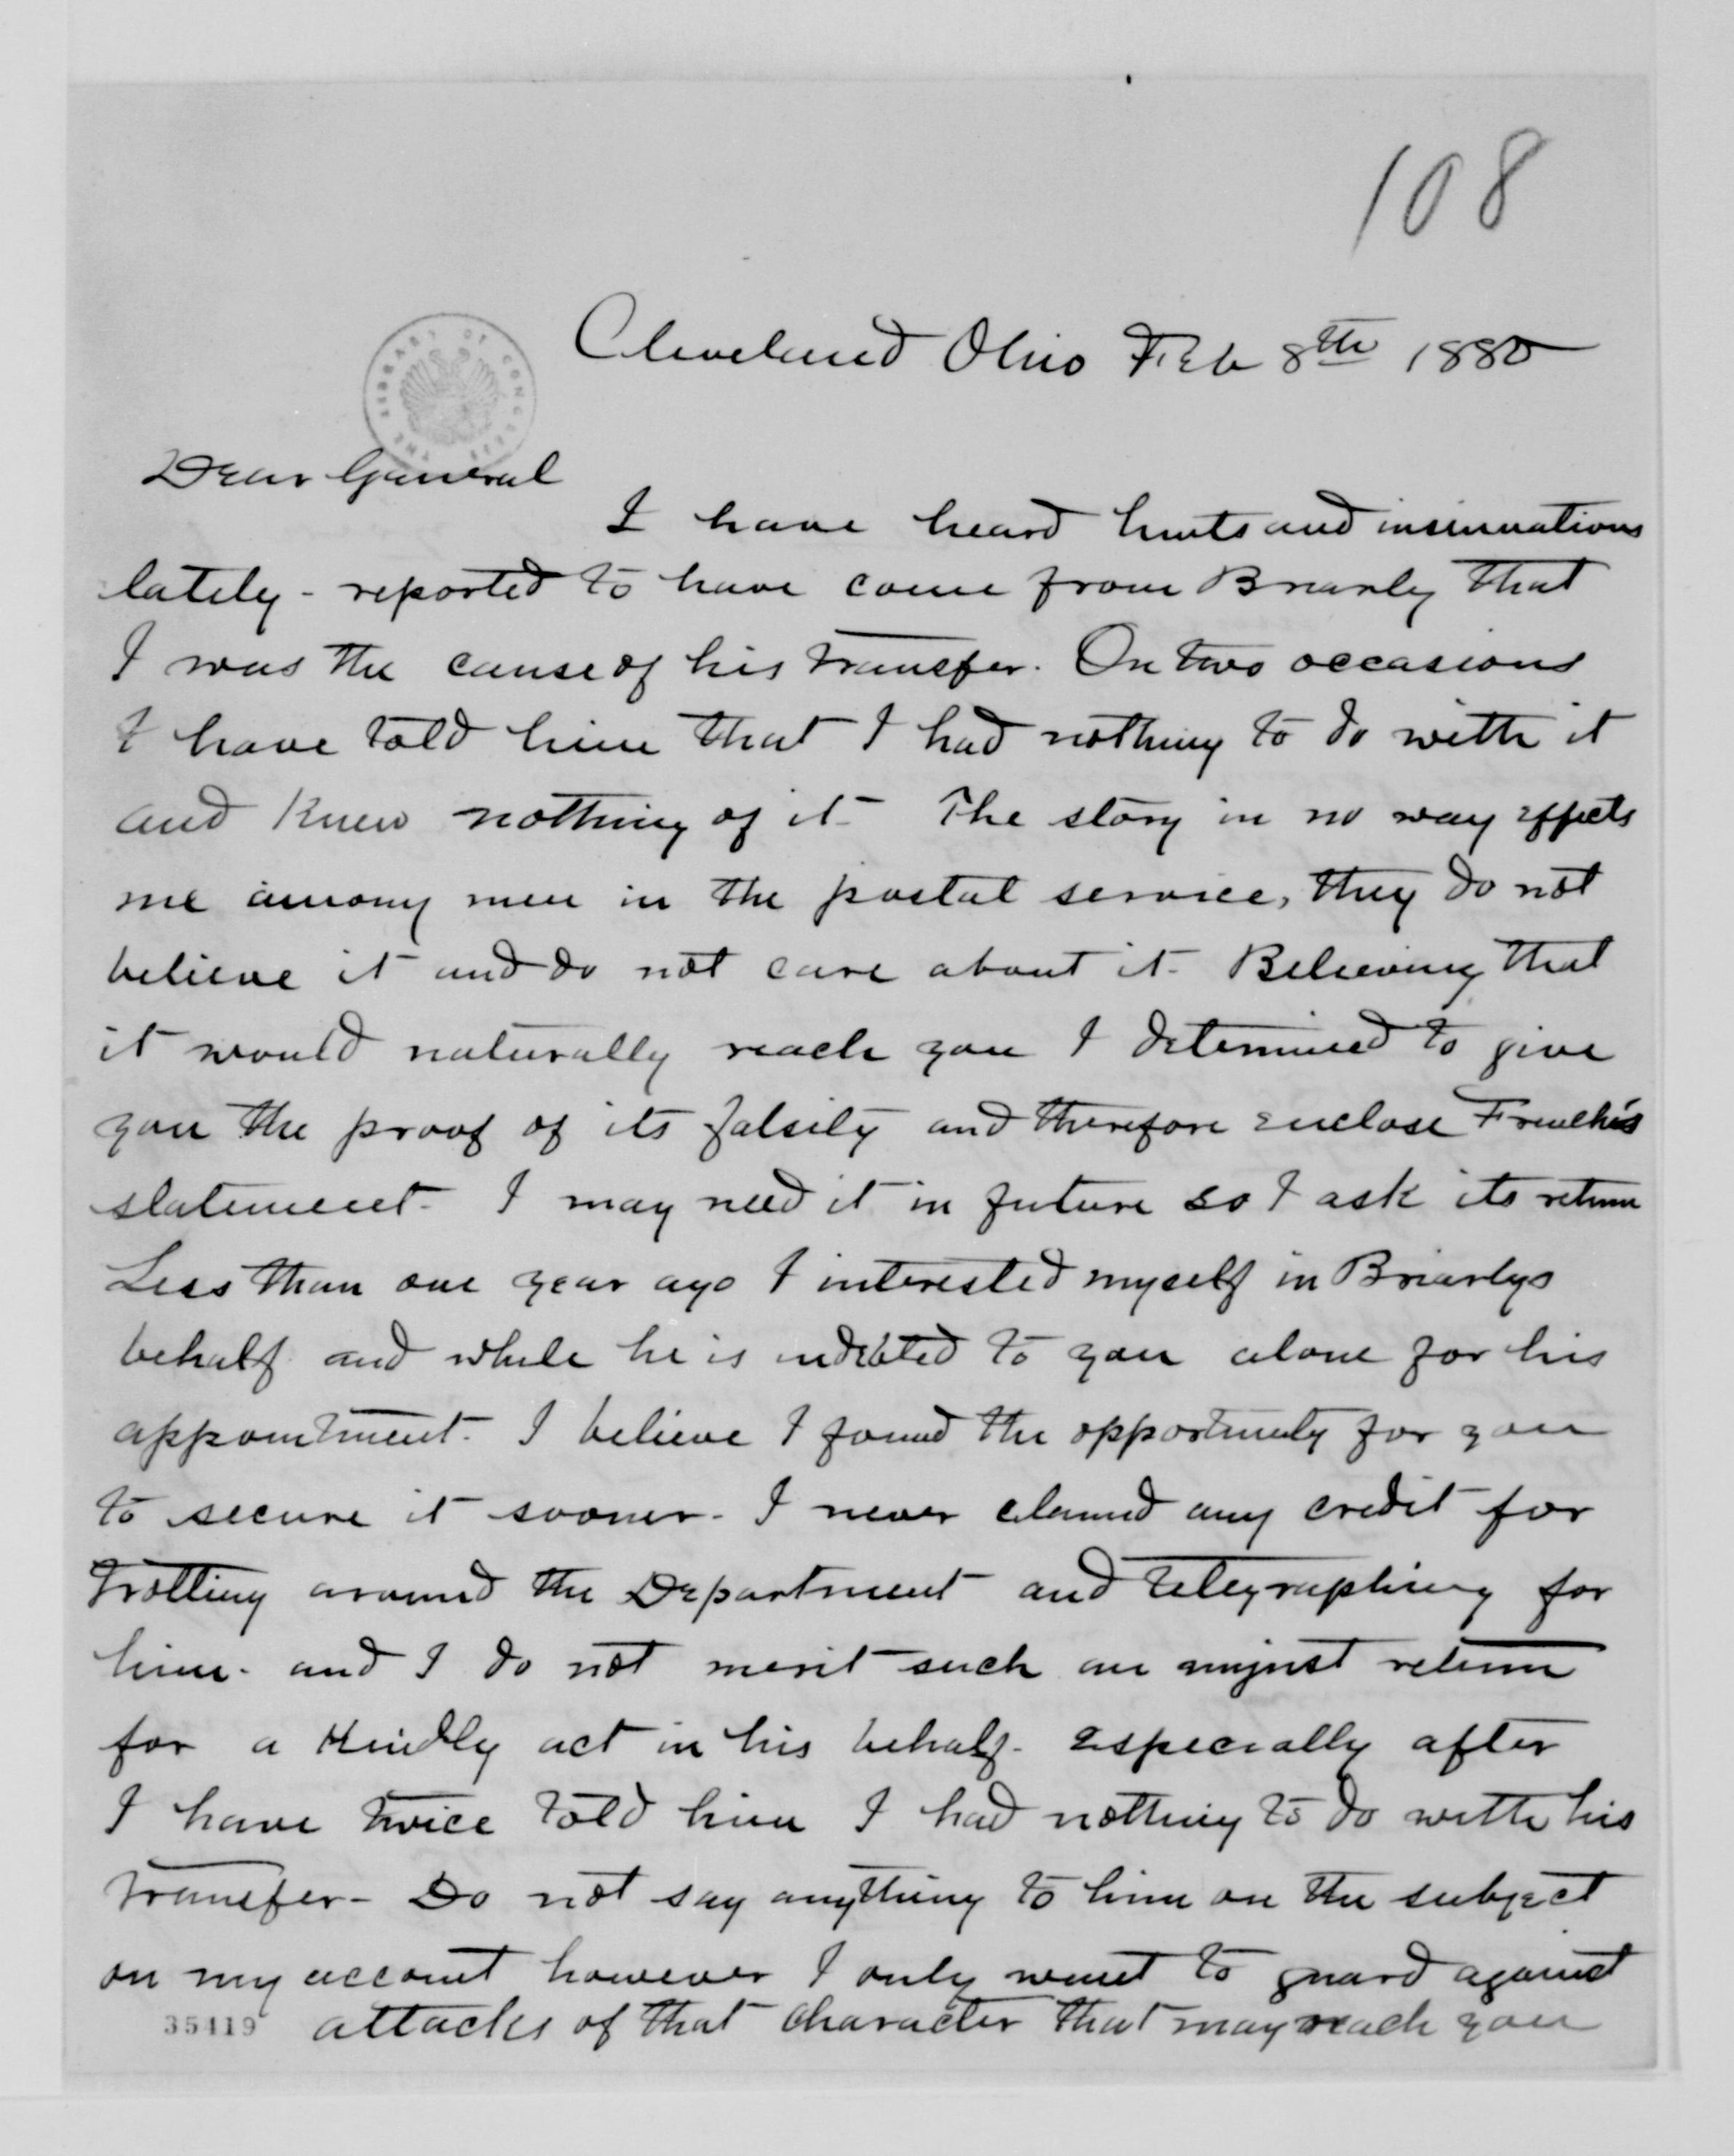 108
THE LIBRARY OF CONGRESS
Cleveland Ohio Feb 8th 1880
Dear General
I have heard hints and insinuations
lately - reported to have come from Briarly that
I was the cause of his transfer. On two occasions
I have told him that I had nothing to do with it
and knew nothing of it - The story in no way effects
me among men in the postal service, they do not
believe it and do not care about it - Believing that
it would naturally reach you I determined to give
you the proof of its falsity and therefore enclose French's
statement - I may need it in future so I ask its return
Less than one year ago I interested myself in Briarlys
behalf and while he is indebted to you alone for his
appointment - I believe I found the opportunity for you
to secure it sooner - I never claimed any credit for
trotting around the Department and telegraphing for
him - and I do not merit such an unjust return
for a kindly act in his behalf - especially after
I have twice told him I had nothing to do with his
transfer - Do not say anything to him on the subject
on my account however I only want to guard against
35419 attacks of that character that may reach you